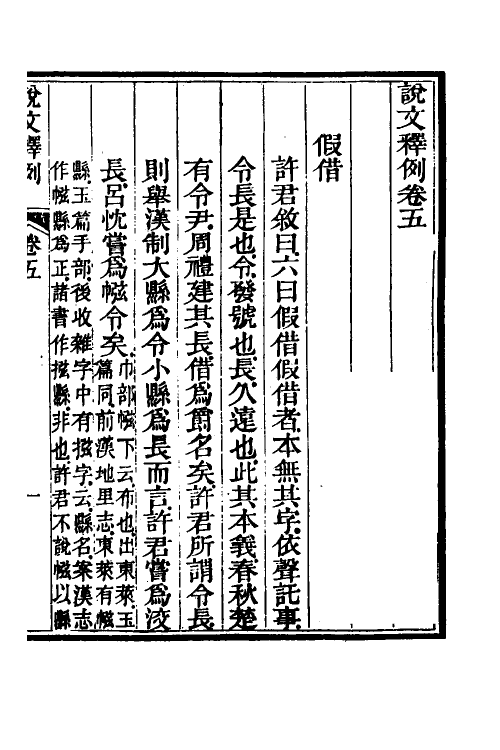 說文釋例卷五
假借
許君敘曰六曰假借假借者本無其字依聲託事
令長是也令發號也長久遠也此其本義春秋楚
有令尹周禮建其長借爲爵名矣許君所謂令長
則舉漢制大縣爲令小縣爲長而言許君嘗爲洨
長呂忱嘗爲㡉令矣巾部㡉下云布也出東萊玉
篇同前漢地里志東萊有㡉
縣玉篇手部後收雜字中有㧡字云縣名案漢志
作㡉縣爲正諸書作㧡縣非也許君不說㡉以縣
說文釋例
卷五
一